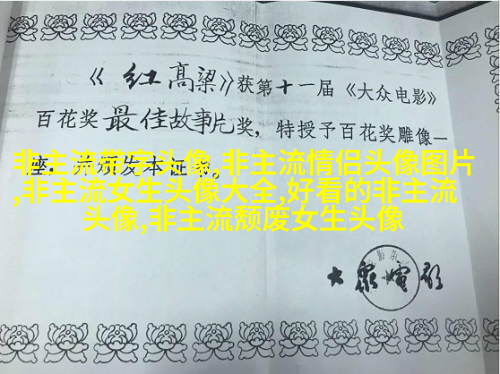 《红高粱》获第十一届《大众电影》
百花奖最佳故事片奖，特授予百花奖雕像一
座，并颁发本证书。
非主流头像,非主流情侣头像图片
,非主流女生头像大全,好看的非主流
头像,非主流颓废女生头像
大眾電影